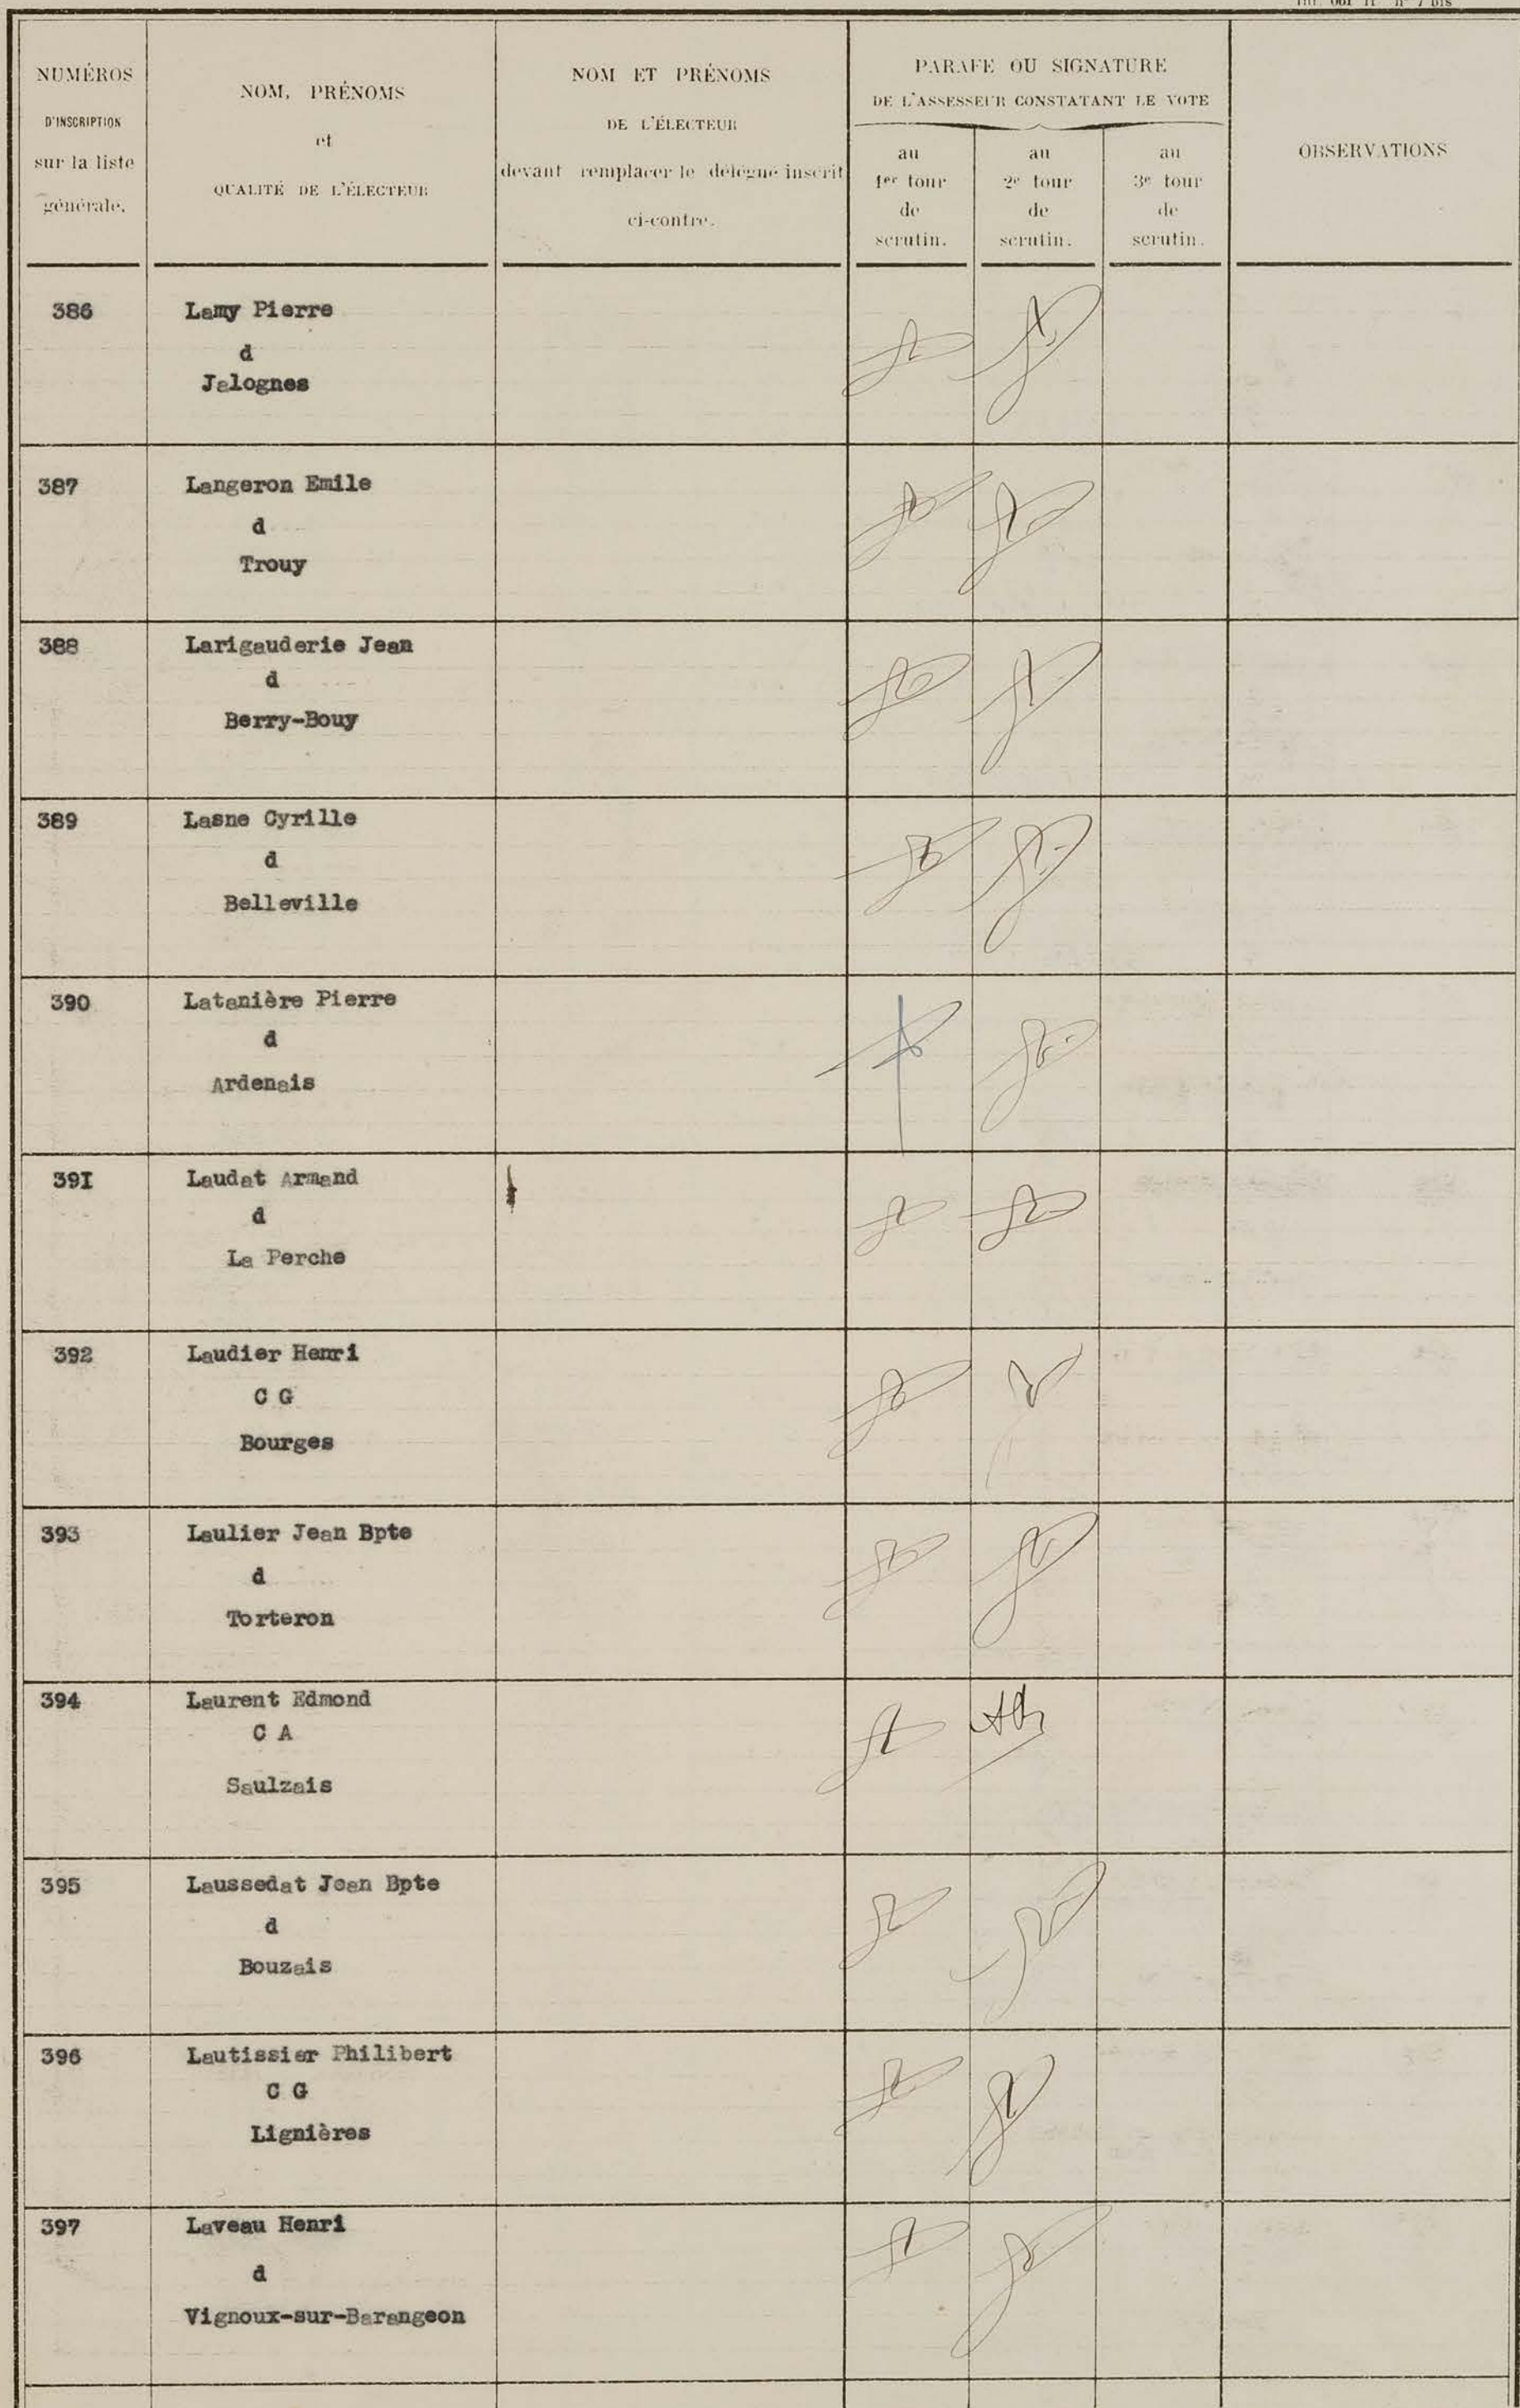 NUMÉROS
D'INSCRIPTION
sur la liste
générale.
NOM, PRÉNOMS
et
QUALITÉ DE L'ÉLECTEUR
NOM ET PRÉNOMS
DE L'ÉLECTEUR
devant remplacer le délégué inscrit
ci-contre.
PARAFE OU SIGNATURE
DE L'ASSESSEUR CONSTATANT LE VOTE
au
1er tour
de
scrutin.
au
2e tour
de
scrutin.
au
3e tour
de
scrutin.
OBSERVATIONS
386 Lamy Pierre
d
Jalognes
387 Langeron Emile
d
Trouy
388 Larigauderie Jean
d
Berry-Bouy
389 Lasne Cyrille
d
Belleville
390 Latanière Pierre
d
Ardenais
39I Laudat Armand
d
La Perche
392 Laudier Henri
C G
Bourges
393 Laulier Jean Bpte
d
Torteron
394 Laurent Edmond
C A
Saulzais
395 Laussedat Jean Bpte
d
Bouzais
396 Lautissier Philibert
C G
Lignières
397 Laveau Henri
d
Vignoux-sur-Barangeon